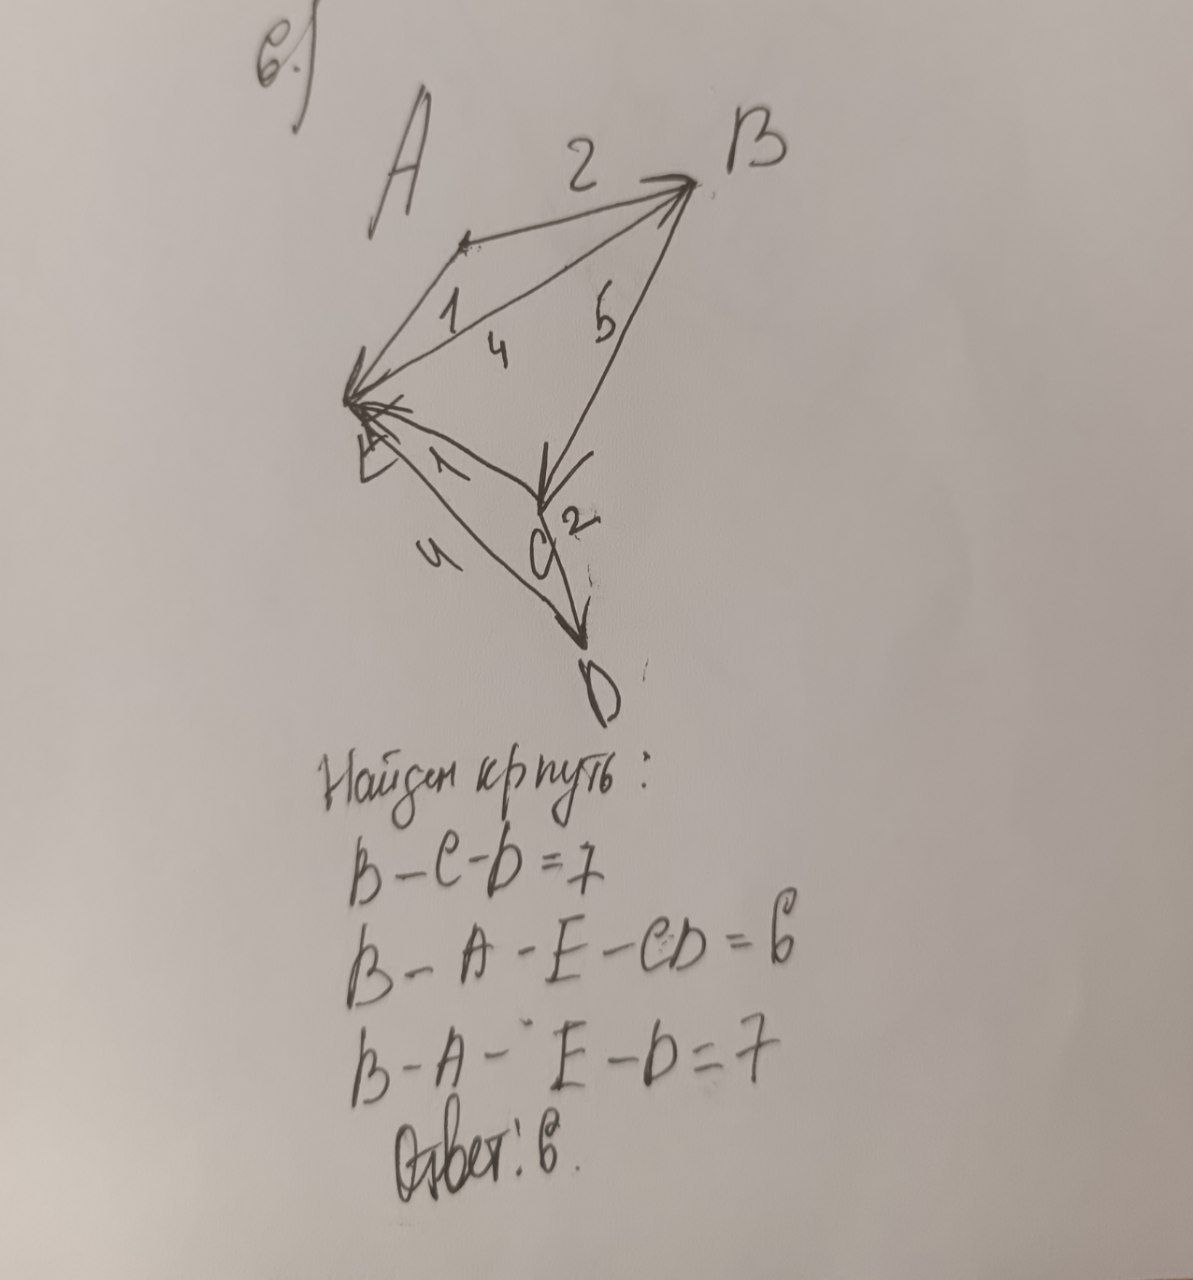 6.)
A
2
B
1
4
5
E
1
2
C
4
D
Найдем кр путь:
B-C-D=7
B-A-E-CD=6
B-A-E-D=7
Ответ: 6.